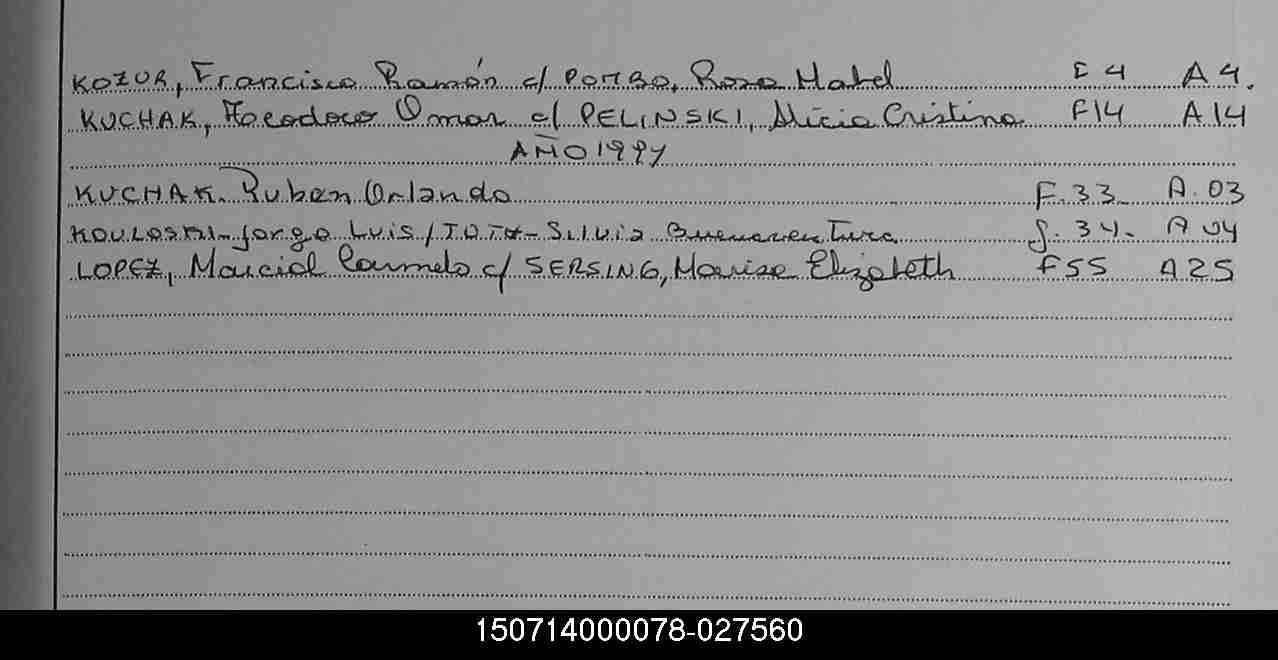 KOZUR, Francisco Ramón c/ POMBO, Rosa Mabel F 4 A 4.
KUCHAK, Teodoro Omar c/ PELINSKI, Alicia Cristina F14 A14
AÑO 1994
KUCHAK. Ruben Orlando F. 33 A. 03
Jorge Luis / Silvia Buenaventura F. 34. A 04
LOPEZ, Marcial Carmelo c/ SERSING, Marisa Elizabeth F55 A25
150714000078-027560